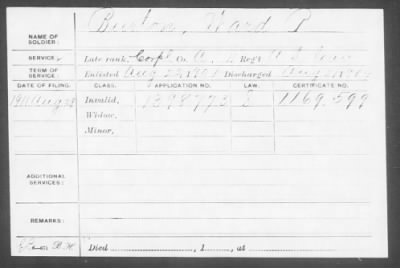 NAME OF SOLDIER: Burton, Ward P
SERVICE: Late rank, Corpl Co. Regt U.S.
TERM OF SERVICE: Enlisted Aug Discharged Aug
DATE OF FILING. CLASS. APPLICATION NO. LAW. CERTIFICATE NO.
Aug Invalid, 1398773 1169.599
Widow,
Minor,
ADDITIONAL SERVICES:
REMARKS:
Died , 1 , at